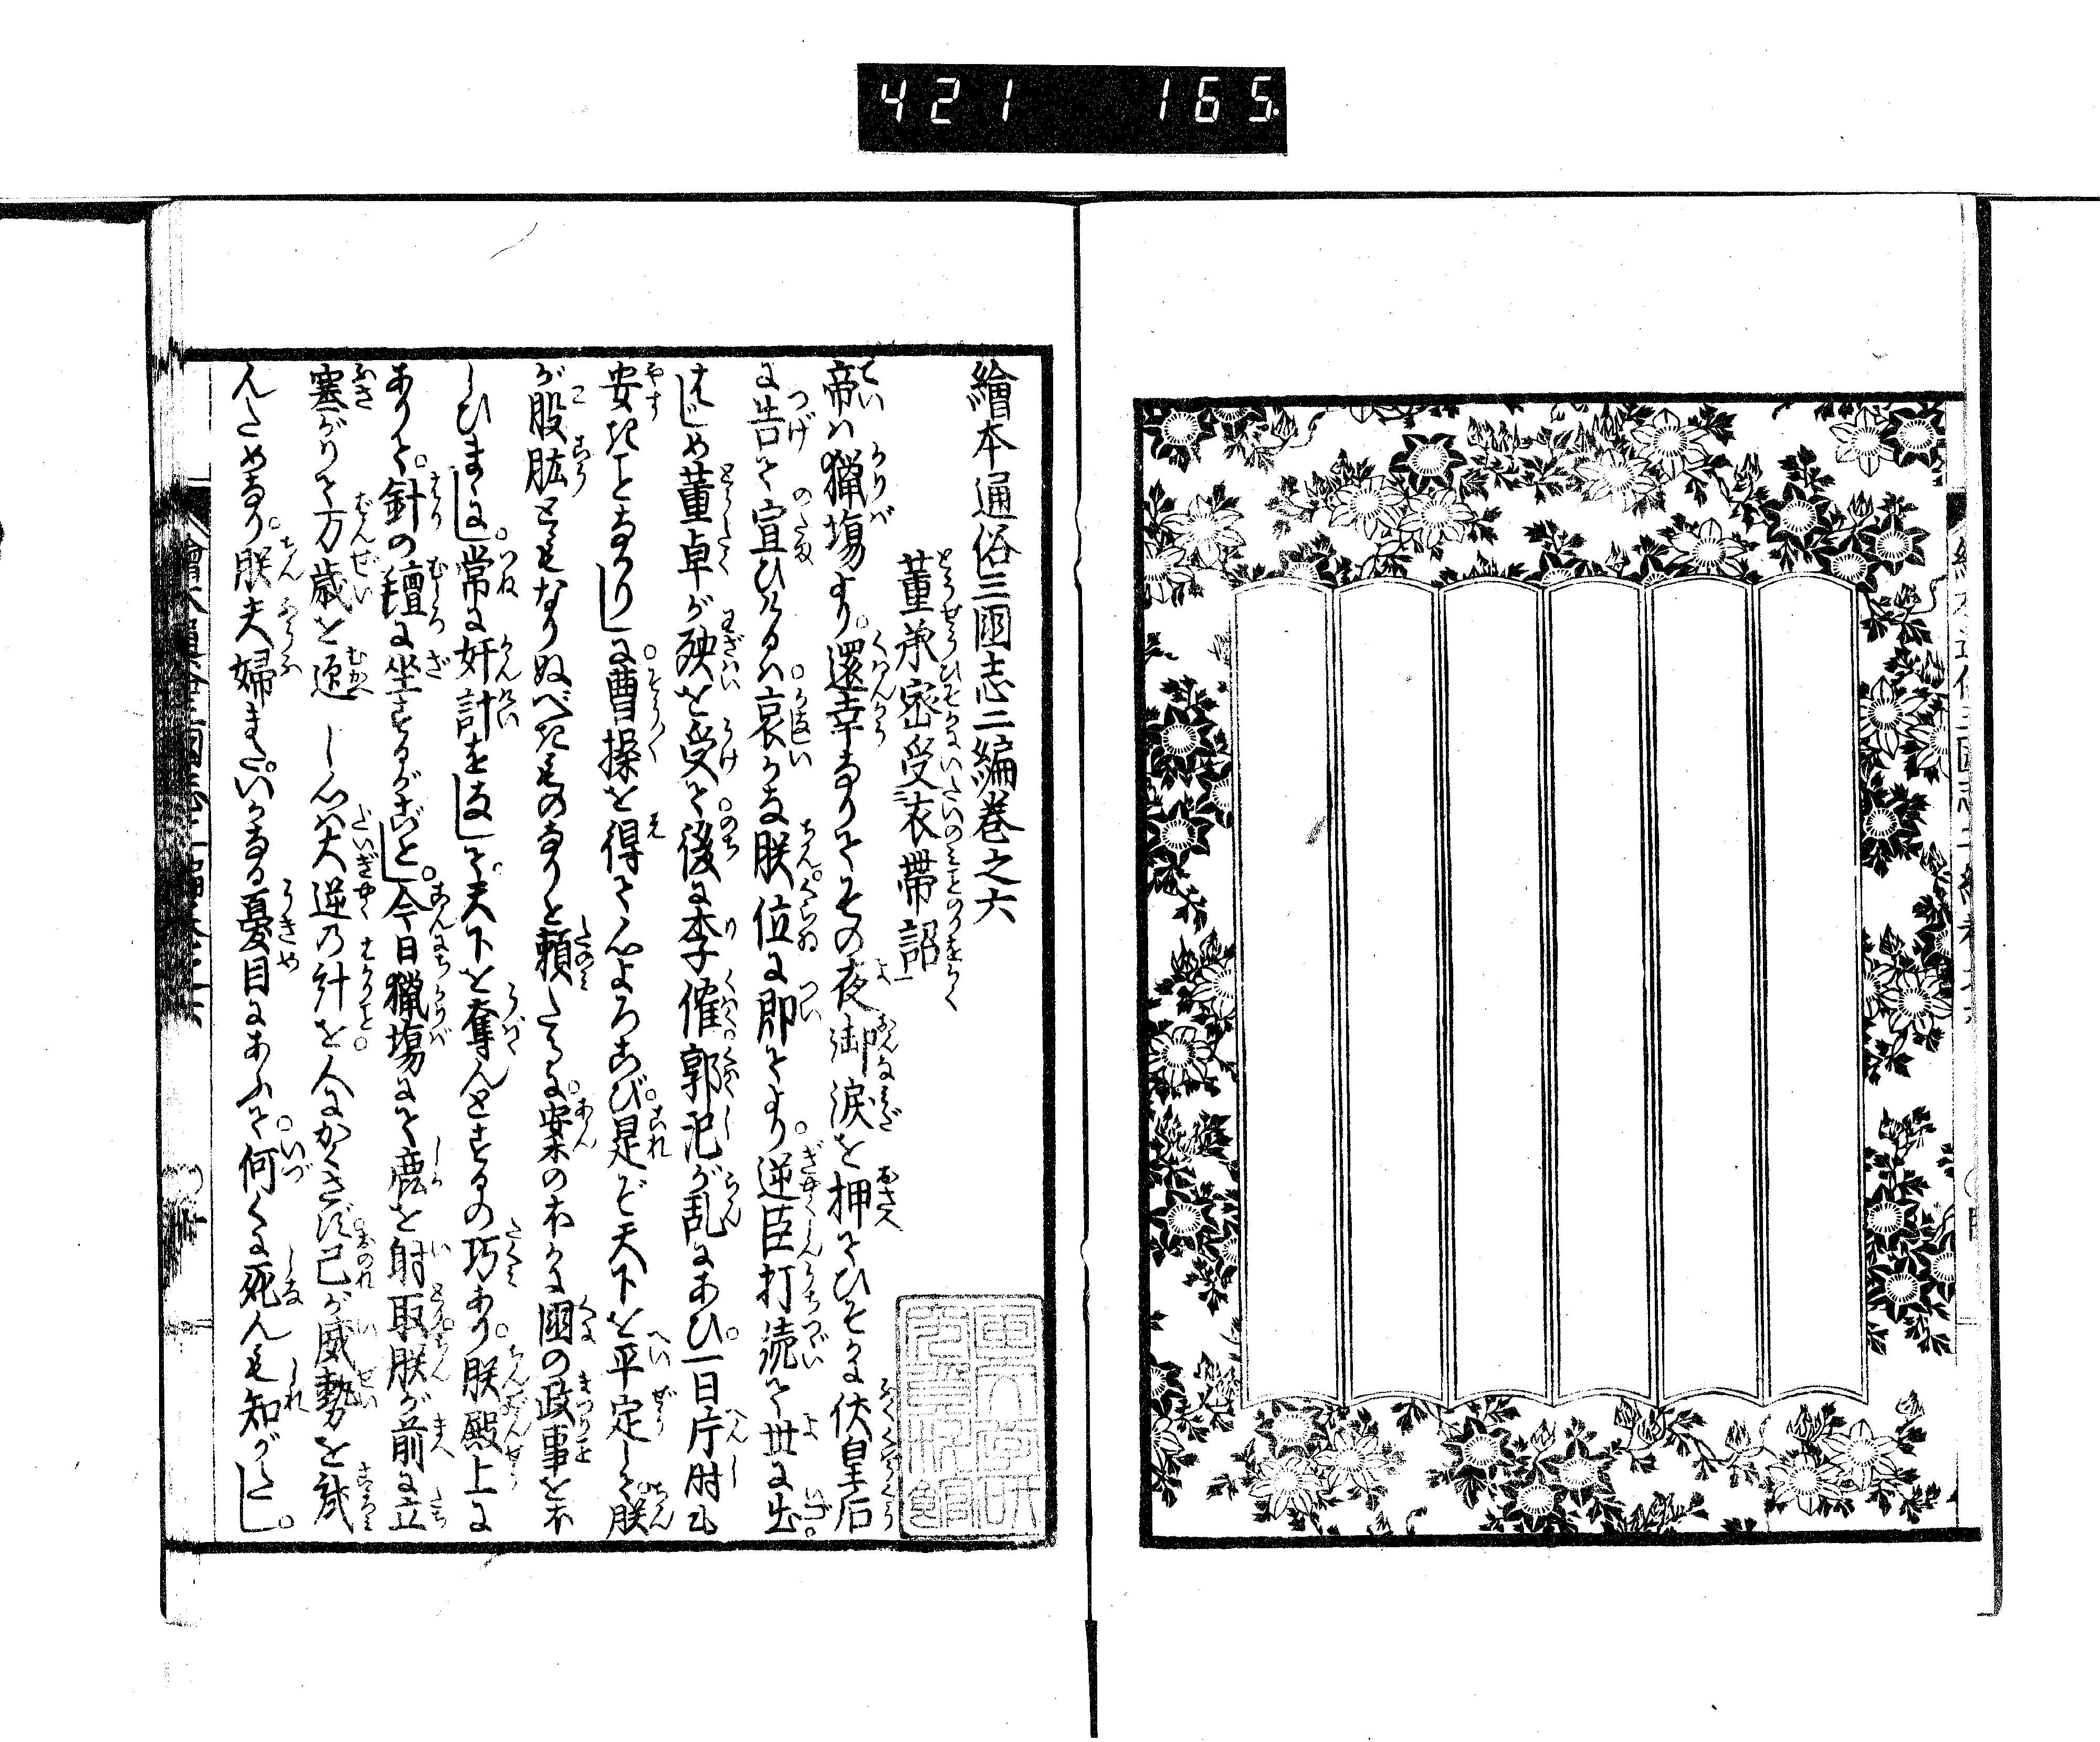 421 165
繪本通俗三國志二編巻之六
董承密受衣帶詔
帝ハ獵場より。還幸なりてその夜御涙を押てひそかに伏皇后
に告て宣ひけるハ。哀かな朕位に即てより。逆臣打続て世に出。
はじめ董卓が殃を受て。後に李傕。郭汜が乱にあひ。一日片时も
安きことなかりしに。曹操を得て心よろこび。是ぞ天下を平定して。朕
が股肱ともなりぬべきものなりと頼たるに。案のほかに國の政事をほ
しひまゝにし。常に奸計をなして。天下を奪んとするの巧あり。朕殿上に
ありて。針の氊に坐するがごとし。今日獵場にて鹿を射取。朕が前に立
塞がりて万歳を迎しハ大逆の計を。人にかくさず。己が威勢を試
んためなり。朕夫婦まだいかなる憂目にあふて。何くに死んも知がたし。